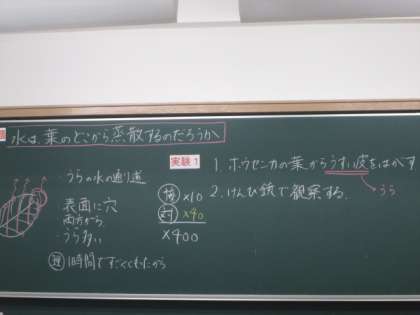 水は、葉のどこから蒸散するのだろうか
・うらの水の通り道
表面に穴
両方から
・うら多い
理 1時間ですごくくもったから
実験1
接 ×10
対 ×40
×400
1. ホウセンカの葉からうすい皮をはがす
うら
2. けんび鏡で観察する.